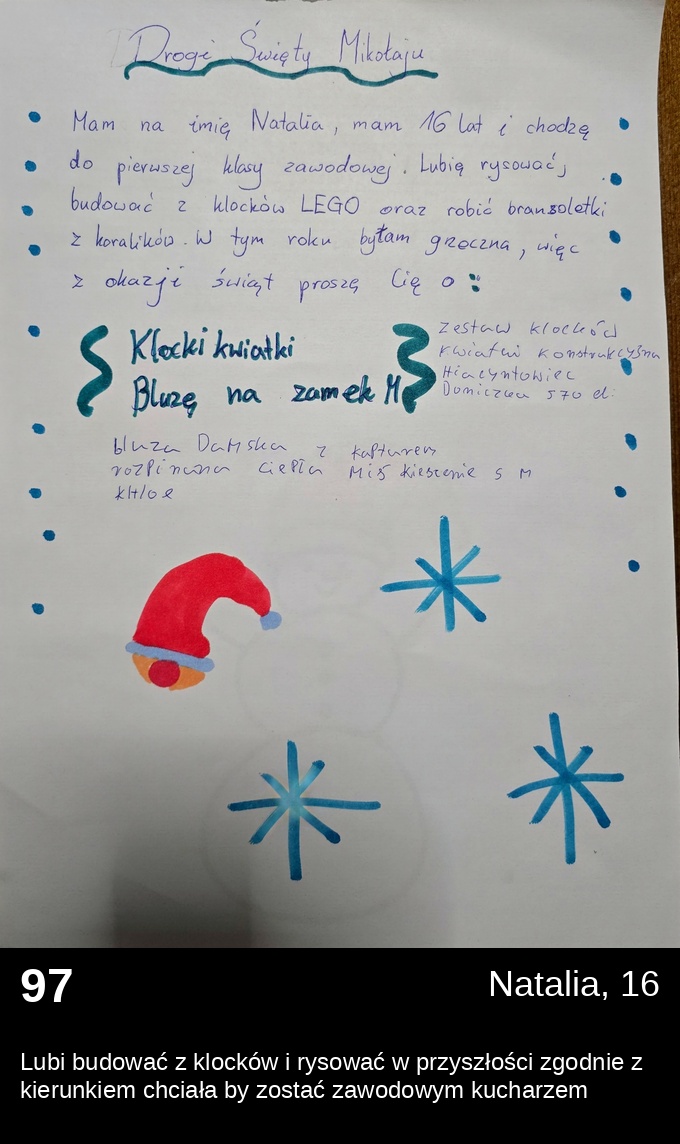 Drogi Święty Mikołaju
Mam na imię Natalia, mam 16 lat i chodzę
do pierwszej klasy zawodowej. Lubię rysować,
budować z klocków LEGO oraz robić bransoletki
z koralików. W tym roku byłam grzeczna, więc
z okazji świąt proszę Cię o :
Klocki kwiatki
Bluzę na zamek M
zestaw klocków
kwiatów konstrukcyjna
Hiacyntowiec
Doniczka 570 el.
bluza Damska z kapturem
rozpinana ciepła Miś kieszenie s M
kHloe
97
Natalia, 16
Lubi budować z klocków i rysować w przyszłości zgodnie z
kierunkiem chciała by zostać zawodowym kucharzem